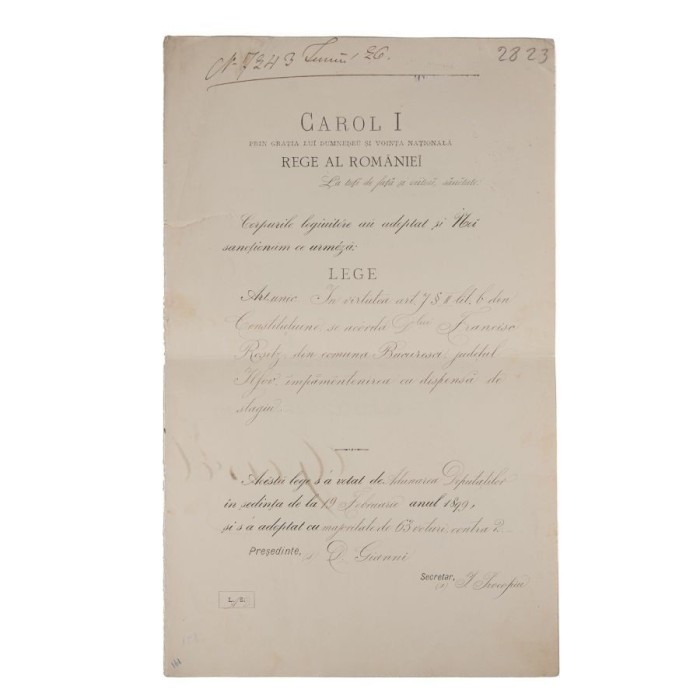 No 7243 Iunie 26. 2823
CAROL I
PRIN GRATIA LUI DUMNEDEU SI VOINTA NATIONALĂ
REGE AL ROMÂNIEI
La toți de față și viitori, sănătate:
Corpurile legiuitóre au adoptat și Noi
sancționăm ce urméză:
LEGE
Art. unic. In virtutea art. 7 § II lit. b din
Constituțiune, se acordă D-lui Francisc
din comuna Bucuresci, județul
Ilfov, împământenirea cu dispensă de
stagiu.
Acéstă lege s'a votat de Adunarea Deputaților
în ședința de la 19 Februarie anul 1899,
și s'a adoptat cu majoritate de 63 voturi, contra 2.
Președinte, D. Gianni
Secretar, I. Procopiu
L. S.